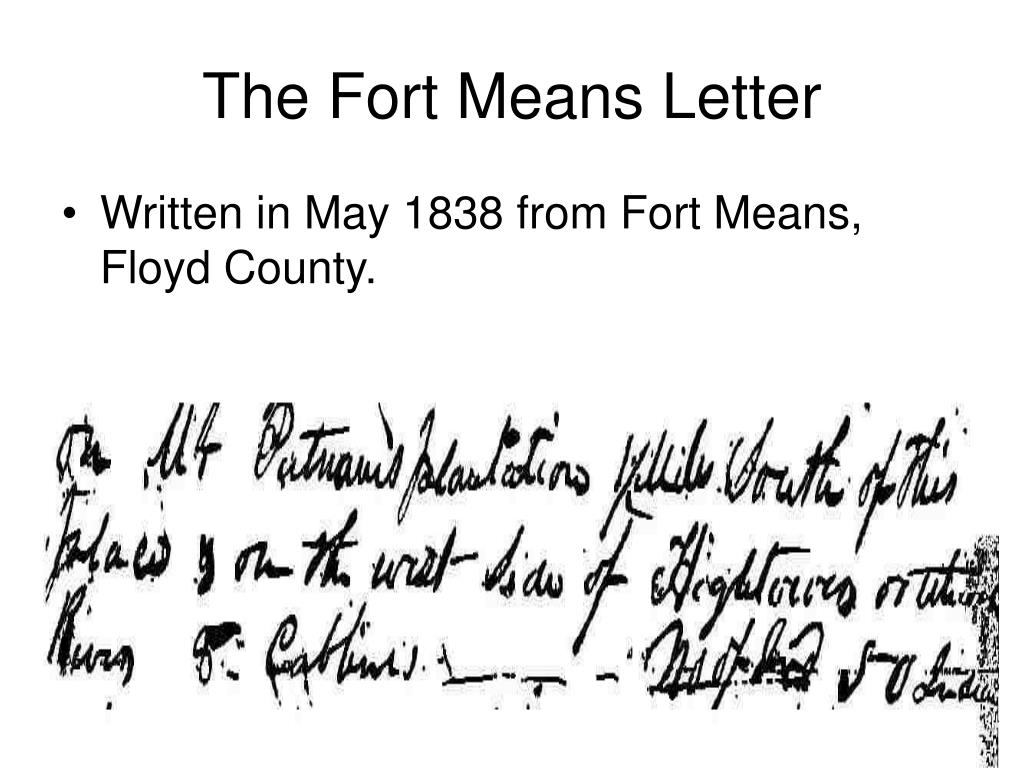 The Fort Means Letter
• Written in May 1838 from Fort Means,
Floyd County.
On Mr Putnam's plantation Miles South of this
place & on the west side of Hightower
River 8 Cabbins No of 50